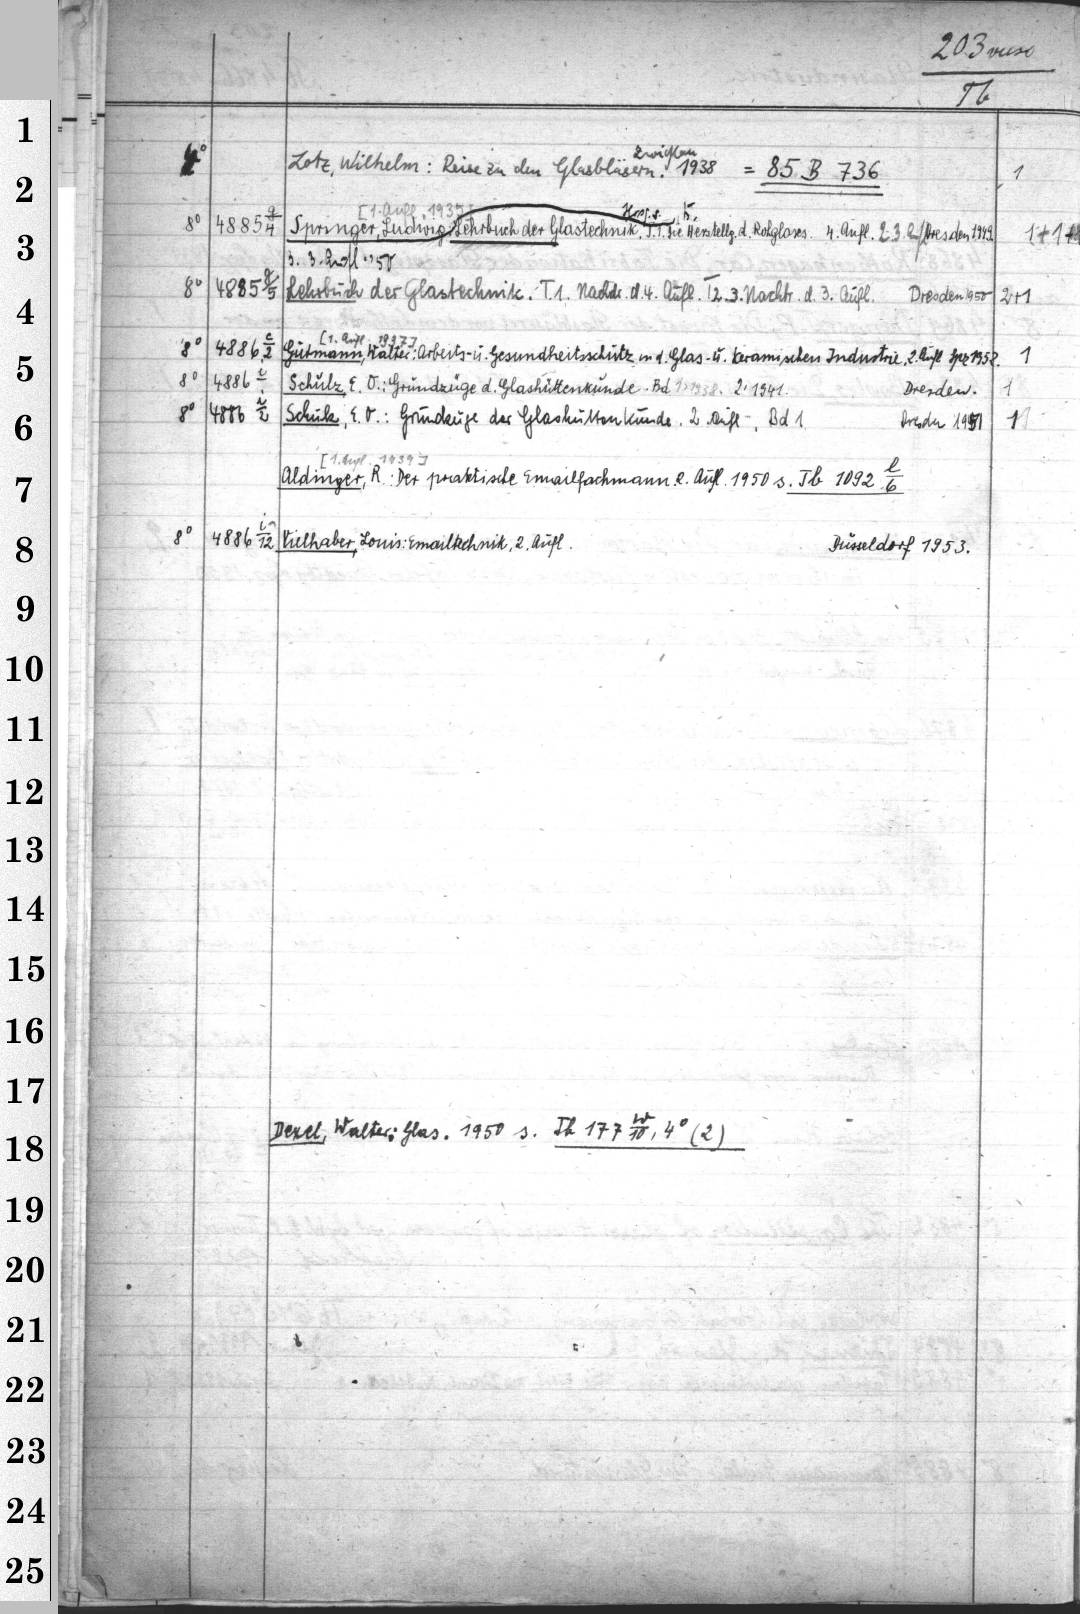 203 verso
Tb
1
2
3
4
5
6
7
8
9
10
11
12
13
14
15
16
17
18
19
20
21
22
23
24
25
4° Lotz, Wilhelm: Reise zu den Glasbläsern. Zwickau 1938 = 85 B 736 1
[1. Aufl. 1935] Hrsg. v.
8° 4885 g/4 Springer, Ludwig, Lehrbuch der Glastechnik, T.1. Die Herstellg. d. Rohglases. 4. Aufl. 2. 3. Dresden 1949. 1+1+
3. 3. Aufl. 50
8° 4885 g/5 Lehrbuch der Glastechnik. T.1. Nachdr. d. 4. Aufl. T2. 3. Nachtr. d. 3. Aufl. Dresden 1950 2+1
[1. Aufl. 1937]
8° 4886 c/2 Gutmann, Walter: Arbeits- u. Gesundheitsschutz in d. Glas- u. keramischen Industrie. 2. Aufl. 1952. 1
8° 4886 i Schulz, E. O.: Grundzüge d. Glashüttenkunde. Bd 1. 1938. 2. 1941. Dresden. 1
8° 4886 i/2 Schulz, E. O.: Grundzüge der Glashüttenkunde. 2. Aufl. Bd 1. Dresden 1951 1
[1. Aufl. 1939]
Aldinger, R.: Der praktische Emailfachmann. 2. Aufl. 1950 s. Tb 1092 l/6
8° 4886 in/12 Vielhaber, Louis: Emailtechnik, 2. Aufl. Düsseldorf 1953.
Dexel, Walter: Glas. 1950 s. Ih 177 W/10, 4° (2)